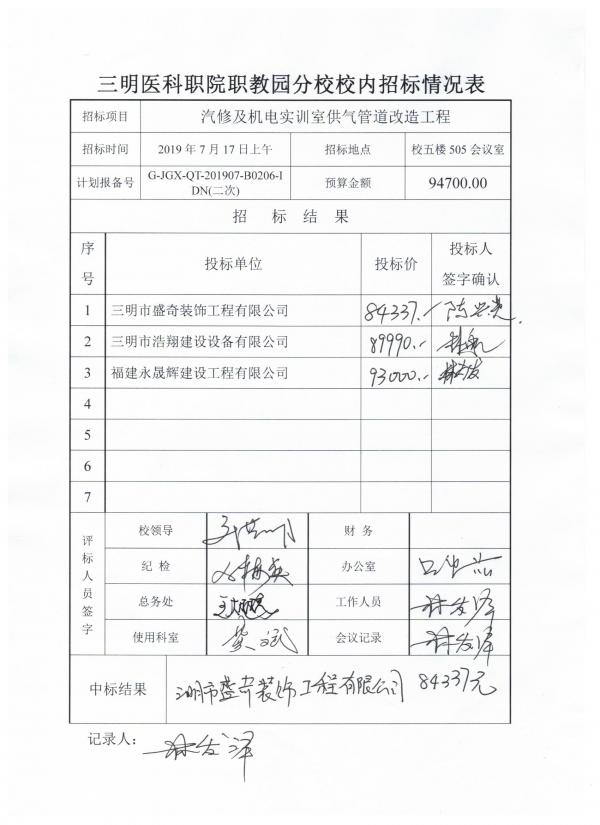 三明医科职院职教园分校校内招标情况表
招标项目 汽修及机电实训室供气管道改造工程
招标时间 2019 年 7 月 17 日上午 招标地点 校五楼 505 会议室
计划报备号 G-JGX-QT-201907-B0206-I
DN(二次) 预算金额 94700.00
招 标 结 果
序
号 投标单位 投标价 投标人
签字确认
1 三明市盛奇装饰工程有限公司 84337.-
2 三明市浩翔建设设备有限公司 89990.-
3 福建永晟辉建设工程有限公司 93000.-
4
5
6
7
评标人员签字
校领导 财 务
纪 检 办公室
总务处 工作人员 林发泽
使用科室 会议记录 林发泽
中标结果 三明市盛奇装饰工程有限公司 84337元
记录人: 林发泽